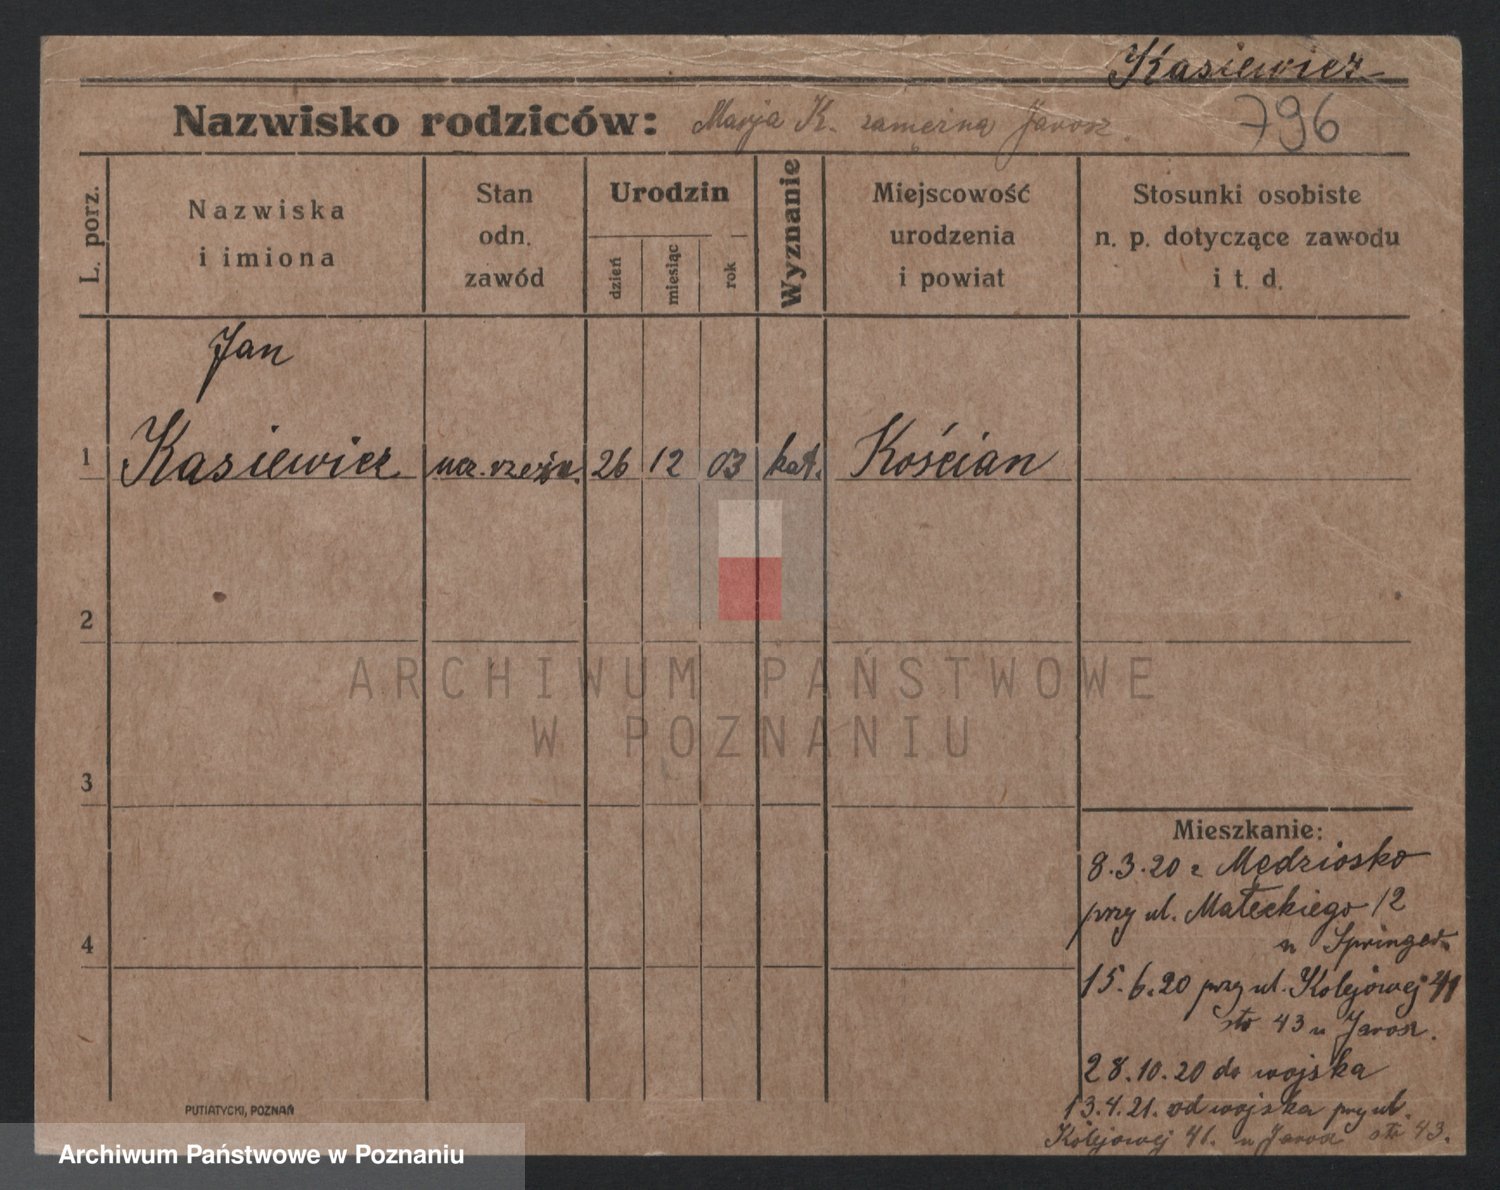 Kasiewicz
Nazwisko rodziców: Marja K. zamężna Jarosz.
796
L. porz.
Nazwiska
i imiona
Stan
odn.
zawód
Urodzin
dzień
miesiąc
rok
Wyznanie
Miejscowość
urodzenia
i powiat
Stosunki osobiste
n. p. dotyczące zawodu
i t. d.
Jan
1 Kasiewicz ucz. rzeźn. 26 12 03 kat. Kościan
2
ARCHIWUM PAŃSTWOWE
W POZNANIU
3
4
Mieszkanie:
8.3.20 z
przy ul. Małeckiego 12
u Springer
15.6.20 przy ul. Kolejowej 41
43 u Jarosz.
28.10.20 do wojska
13.4.21. od wojska przy ul.
Kolejowej 41. u Jarosz 43.
PUTIATYCKI, POZNAŃ
Archiwum Państwowe w Poznaniu